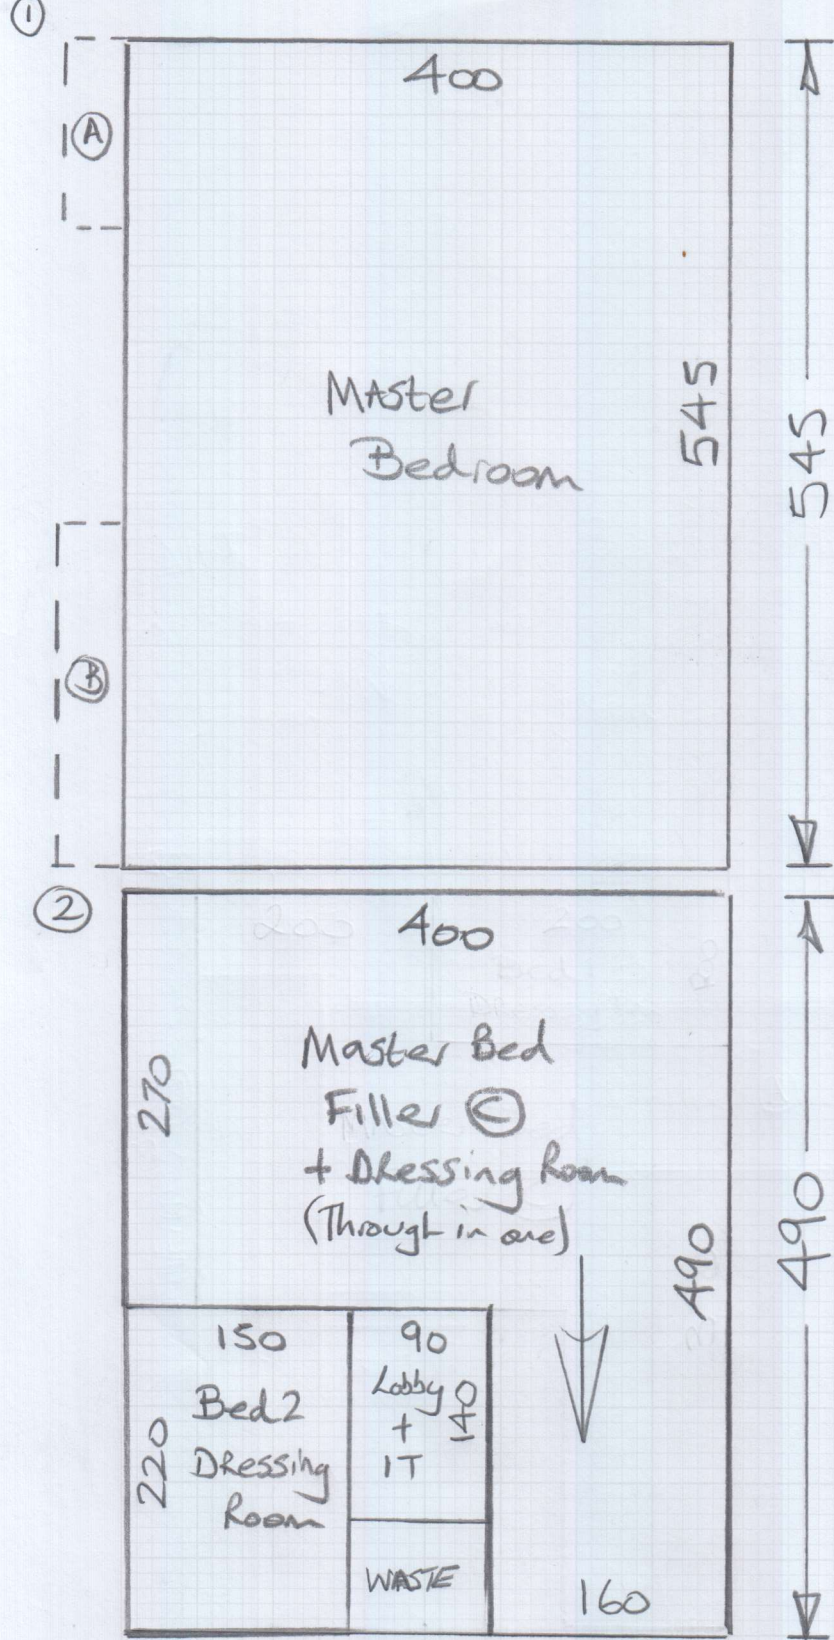 1
400
A
Master
Bedroom
545
545
B
2
400
270
Master Bed
Filler C
+ Dressing Room
(Through in one)
490
490
150
Bed 2
Dressing
Room
220
90
Lobby
+
IT
140
WASTE
160